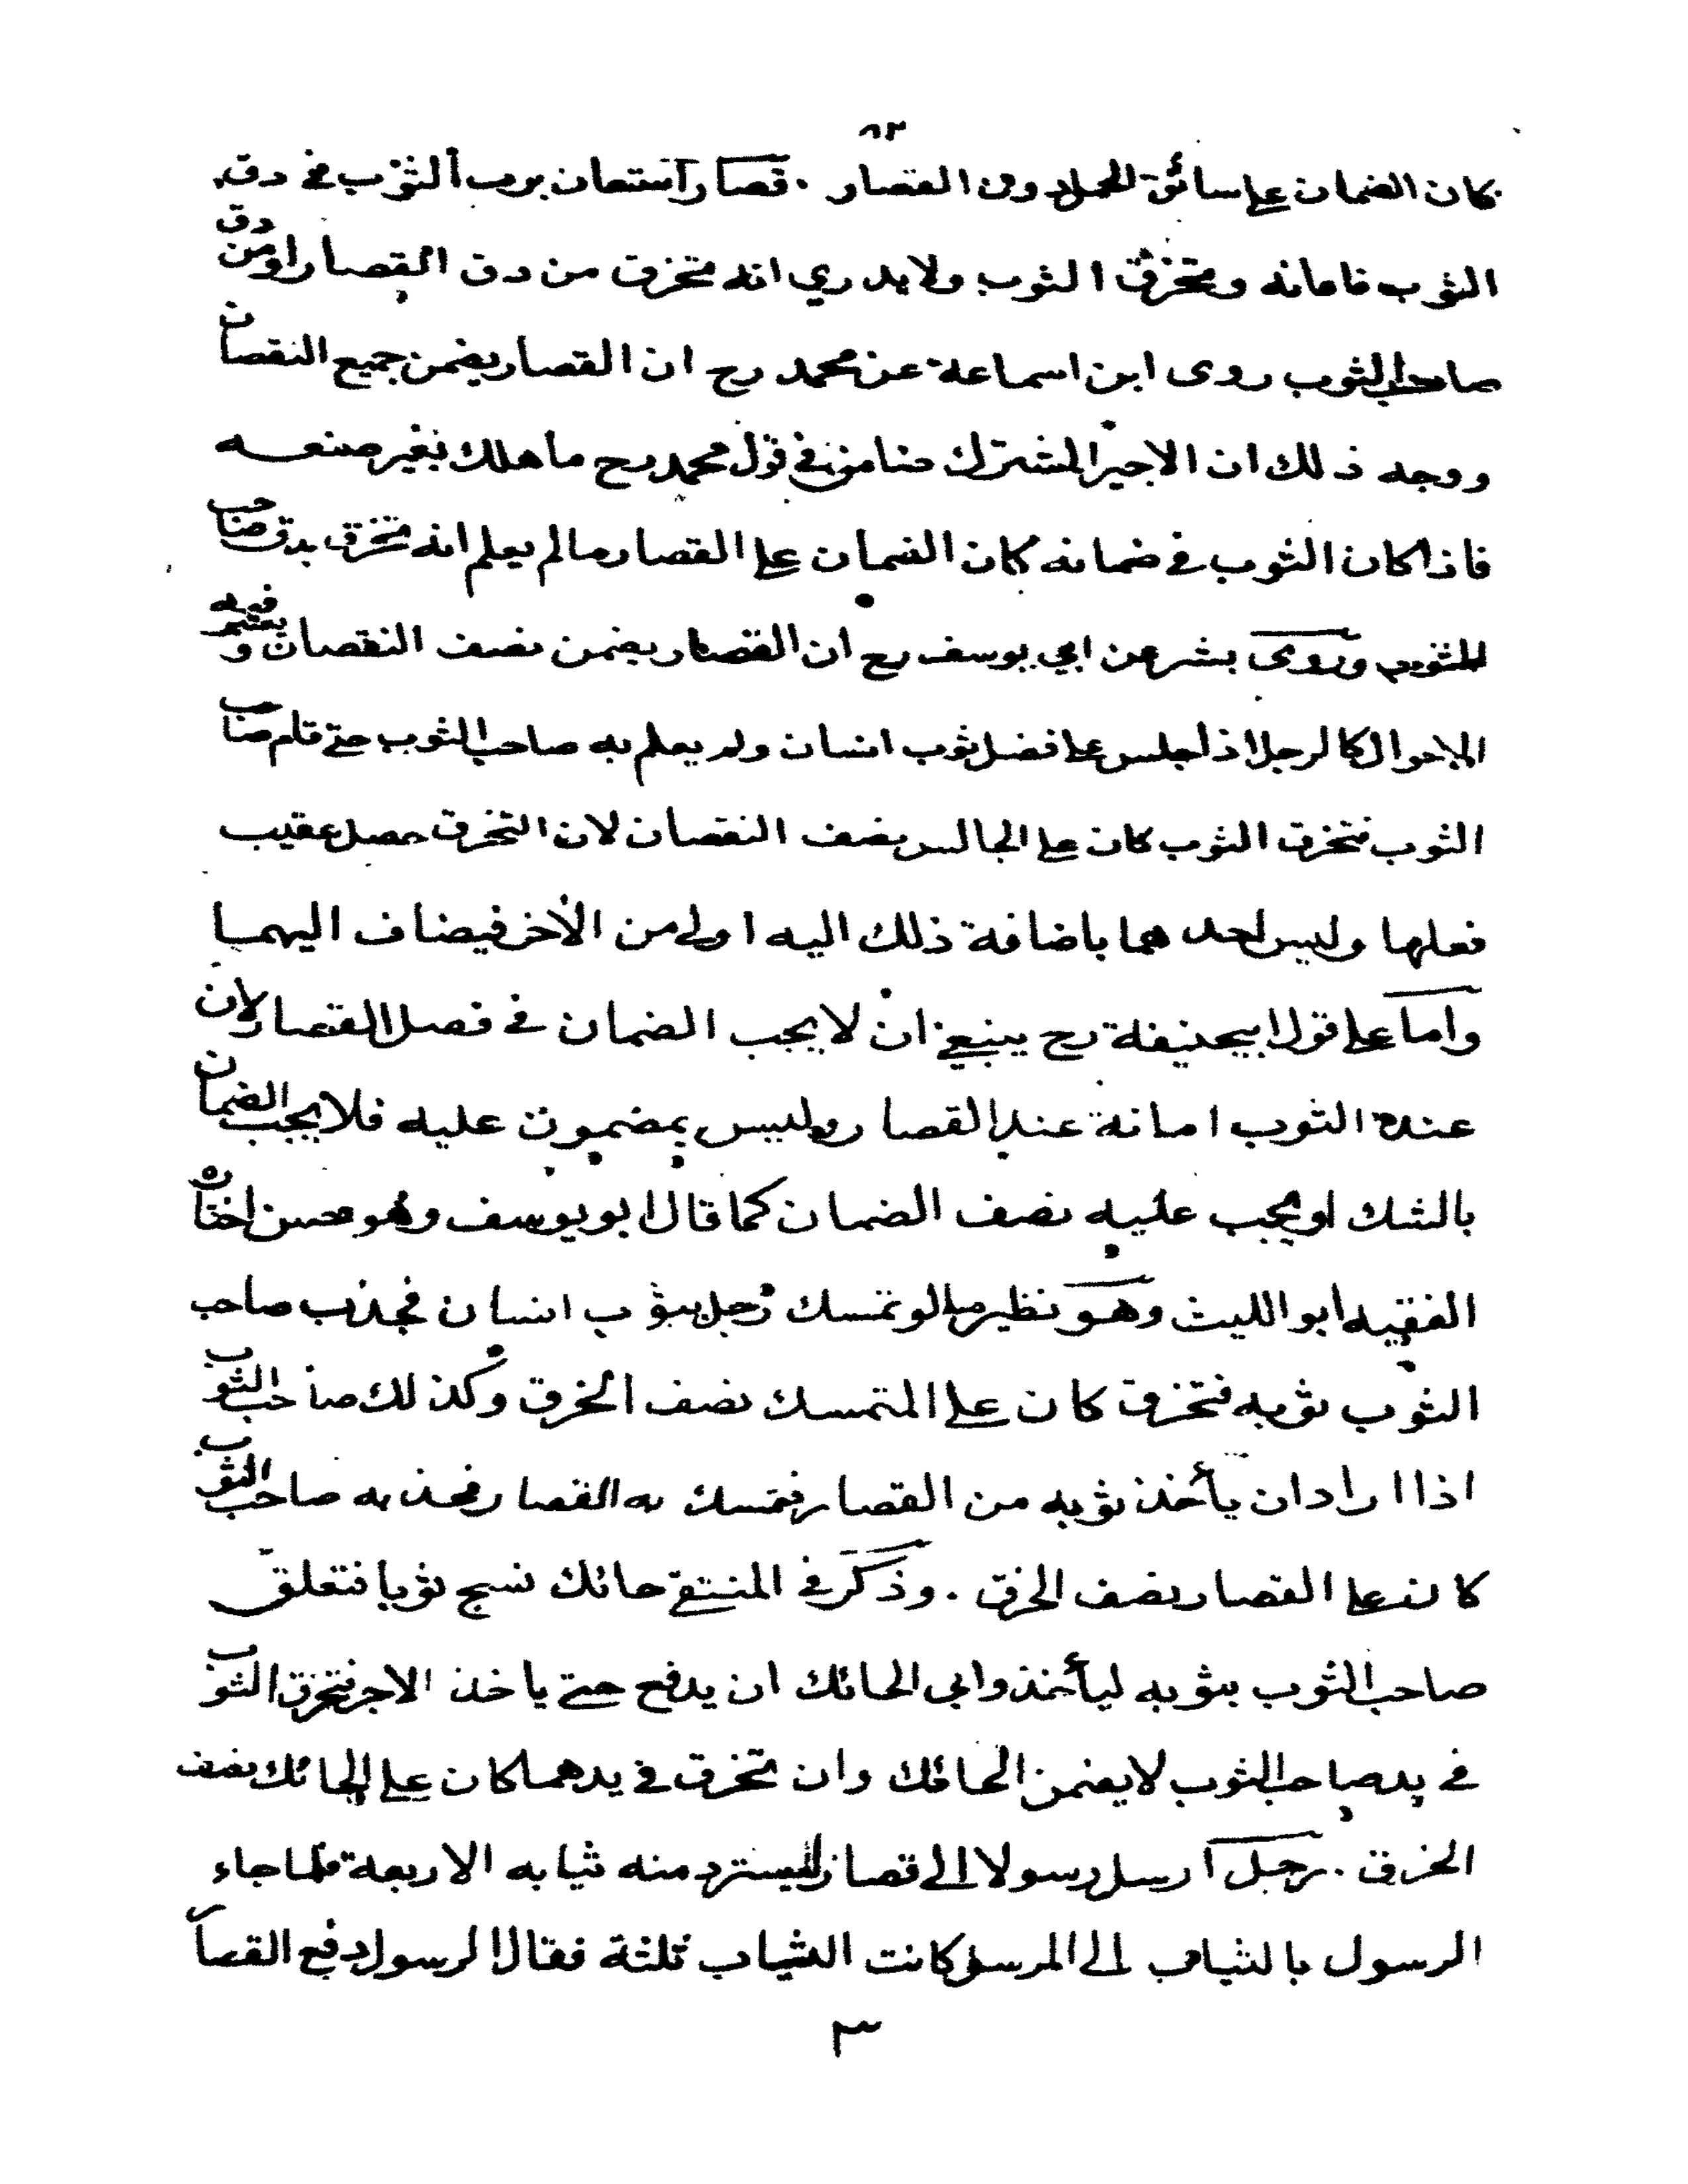 ٨٣
كان الضمان على سائق الحمل دون القصار . قصار استعان برب الثوب في دق
الثوب فاعانه وتخرق الثوب ولا يدري انه تخرق من دق القصار او من دق
صاحب الثوب روى ابن اسماعة عن محمد رح ان القصار يضمن جميع النقصان
ووجه ذلك ان الاجير المشترك ضامن في قول محمد رح ما هلك بغير صنعه
فاذا كان الثوب في ضمانه كان الضمان على القصار ما لم يعلم انه تخرق بدق صاحب
الثوب وروى بشر عن ابي يوسف رح ان القصار يضمن نصف النقصان ويعتبر فيه
الاحوال كالرجل اذا جلس على فضل ثوب انسان ولم يعلم به صاحب الثوب حتى قام صاحب
الثوب فتخرق الثوب كان على الجالس نصف النقصان لان التخرق حصل عقيب
فعلهما وليس احدهما باضافة ذلك اليه اولى من الأخر فيضاف اليهما
واما على قول ابيحنيفة رح ينبغي ان لا يجب الضمان في فصل القصار لان
عنده الثوب امانة عند القصار وليس بمضمون عليه فلا يجب الضمان
بالشك او يجب عليه نصف الضمان كما قال ابو يوسف وهو حسن اختاره
الفقيه ابو الليث وهو نظير ما لو تمسك رجل بثوب انسان فجذب صاحب
الثوب ثوبه فتخرق كان على المتمسك نصف الخرق وكذلك صاحب الثوب
اذا اراد ان يأخذ ثوبه من القصار فتمسك به القصار فجذبه صاحب الثوب
كان على القصار نصف الخرق . وذكر في المنتقى حائك نسج ثوبا فتعلق
صاحب الثوب بثوبه ليأخذ وابى الحائك ان يدفع حتى ياخذ الاجر فتخرق الثوب
في يد صاحب الثوب لا يضمن الحائك وان تخرق في يدهما كان على الحائك نصف
الخرق . رجل ارسل رسولا الى قصار ليسترد منه ثيابه الاربعة فلما جاء
الرسول بالثياب الى المرسل كانت الثياب ثلثة فقال الرسول دفع القصار
٣